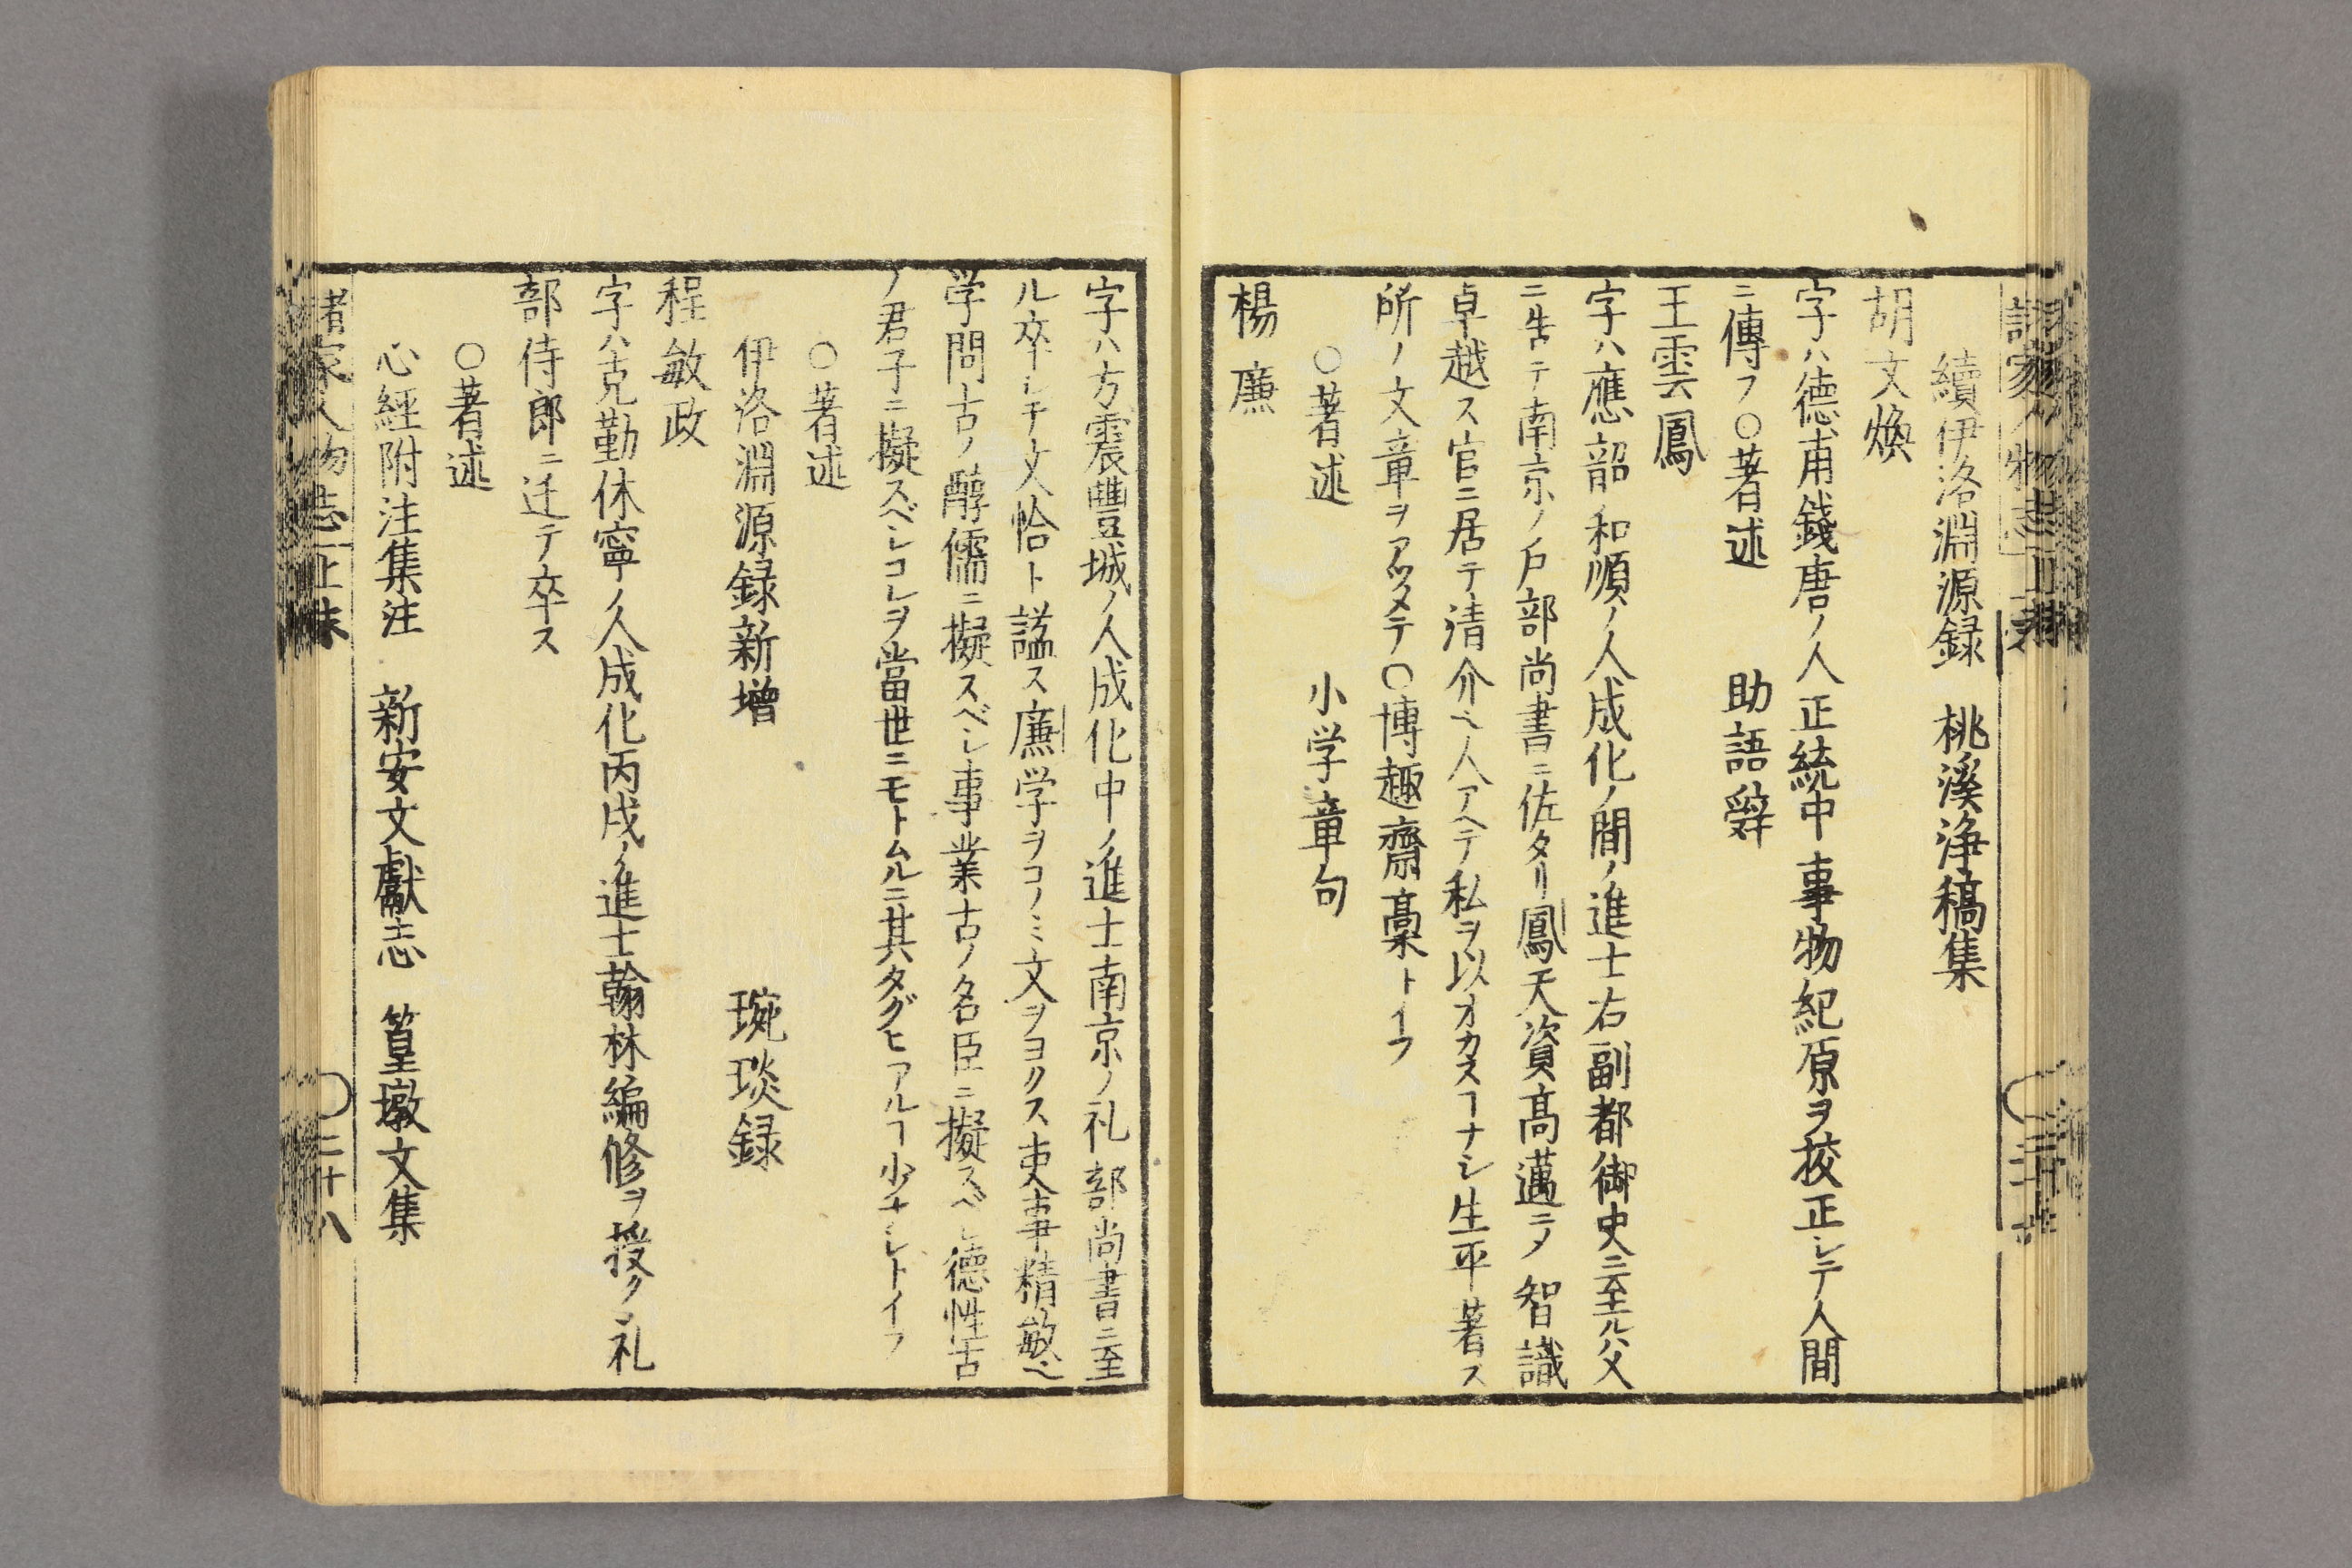 續伊洛淵源録　桃溪浄稿集
胡文煥
字ハ德甫錢唐ノ人正統中事物紀原ヲ挍正シテ人間
ニ傳フ〇著述　助語辤
王雲鳳
字ハ應韶和順ノ人成化ノ間ノ進士右副都御史ニ至ル父
ニ告テ南京ノ戸部尚書ニ佐タリ鳳天資髙邁ニメ智識
卓越ス官ニ居テ清介人アヘテ私ヲ以オカスヿナシ生平著ス
所ノ文章ヲアツメテ〇博趣齋髙稾トイフ
〇著述　小学章句
楊廉
字ハ方震豐城ノ人成化中ノ進士南京ノ礼部尚書ニ至
ル卒シテ文恪ト謚ス廉学ヲコノミ文ヲヨクス吏事精敏
学問古ノ醇儒ニ擬スベシ事業古ノ名臣ニ擬スベシ徳性古
ノ君子ニ擬スベシコレヲ當世ニモトムルニ其タグヒアルヿ少ナシトイフ
〇著述
伊洛淵源録新增　琬琰録
程敏政
字ハ克勤休寧ノ人成化丙戌ノ進士翰林編修ヲ授ク礼
部侍郎ニ迁テ卒ス
〇著述
心經附注集注　新安文獻志　篁墩文集
諸家人物志上
二十八